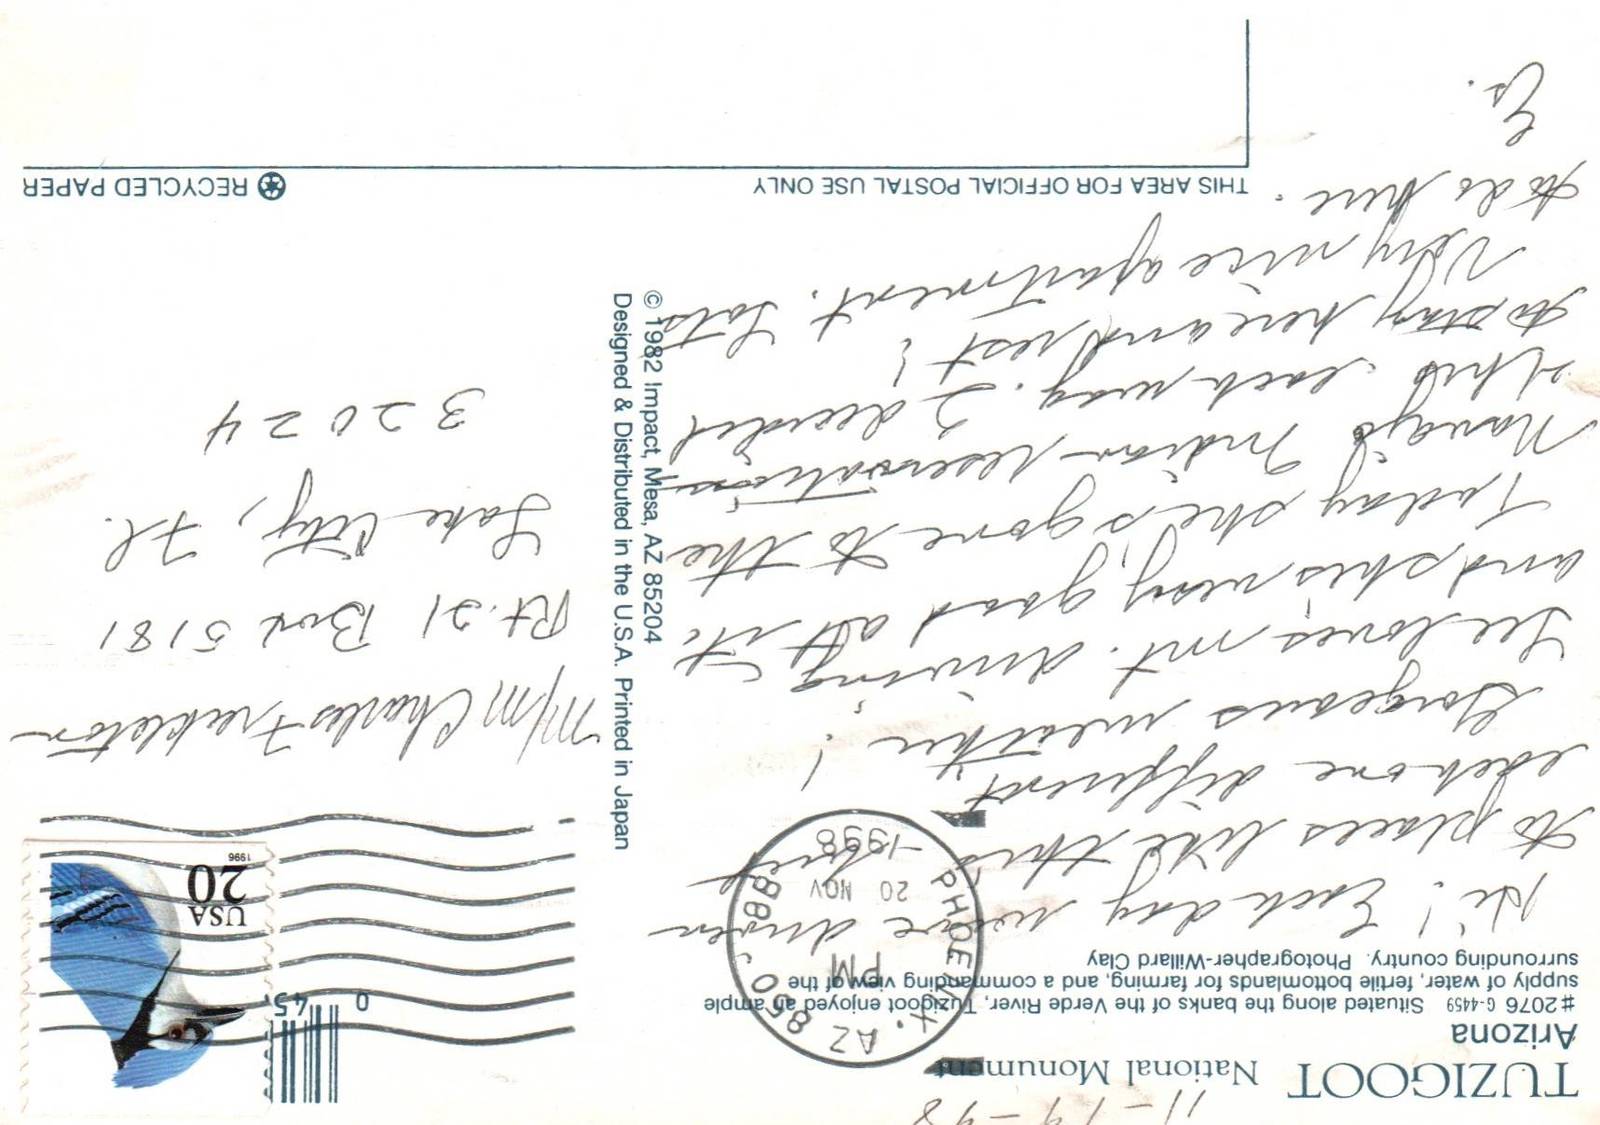 11-19-98
TUZIGOOT National Monument
Arizona
#2076 G-4459 Situated along the banks of the Verde River, Tuzigoot enjoyed an ample
supply of water, fertile bottomlands for farming, and a commanding view of the
surrounding country. Photographer-Willard Clay
Hi! Each day we've driven
to places like this but
each one different!
Gorgeous weather!
Lee loves mt. driving
and she's very good at it.
Today she's gone to the
Navajo Indian reservation
4 hrs. each way. I decided
to stay here and rest!
Very nice apartment. Lots
to do here.
© 1982 Impact, Mesa, AZ 85204
Designed & Distributed in the U.S.A. Printed in Japan
PHOENIX, AZ 850 J 8B
PM
20 NOV
1998
USA
20
1996
45
0
M/M Charles Freebleton
Rt. 21 Box 5181
Lake City, Fl.
32024
THIS AREA FOR OFFICIAL POSTAL USE ONLY
RECYCLED PAPER